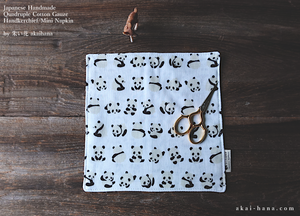 Japanese Handmade
Quadruple Cotton Gauze
Handkerchief/Mini Napkin
by 朱い花 akaihana
akai-hana.com